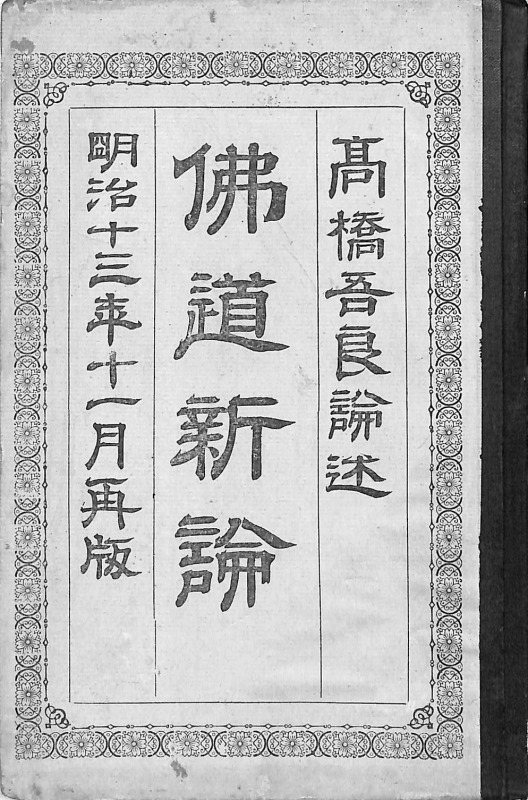 髙橋吾良論述
佛道新論
明治十三年十一月再版